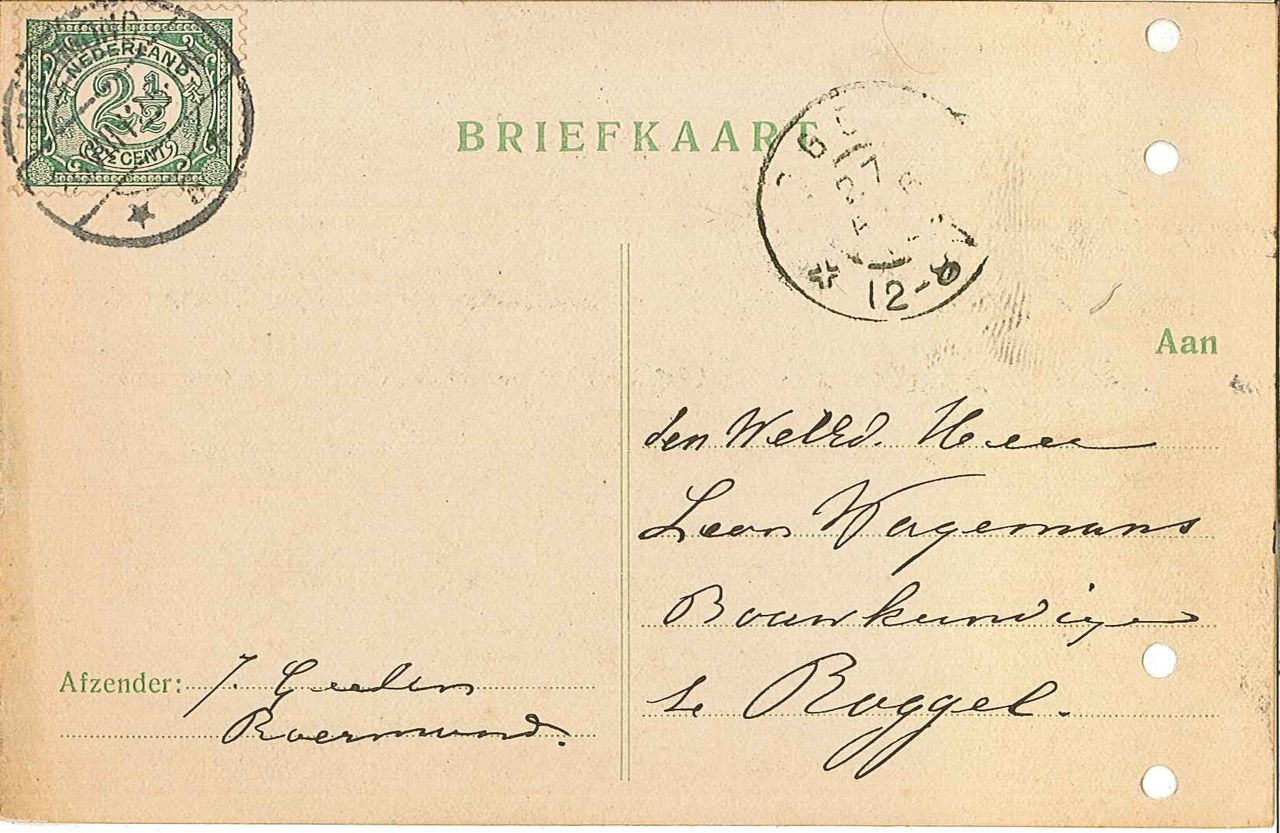 NEDERLAND
2½
2½ CENT
BRIEFKAART
27
12-8
Aan
den WelEd. Heer
Leon Wagemans
Bouwkundige
te Roggel.
Afzender: J. Geelen
Roermond.